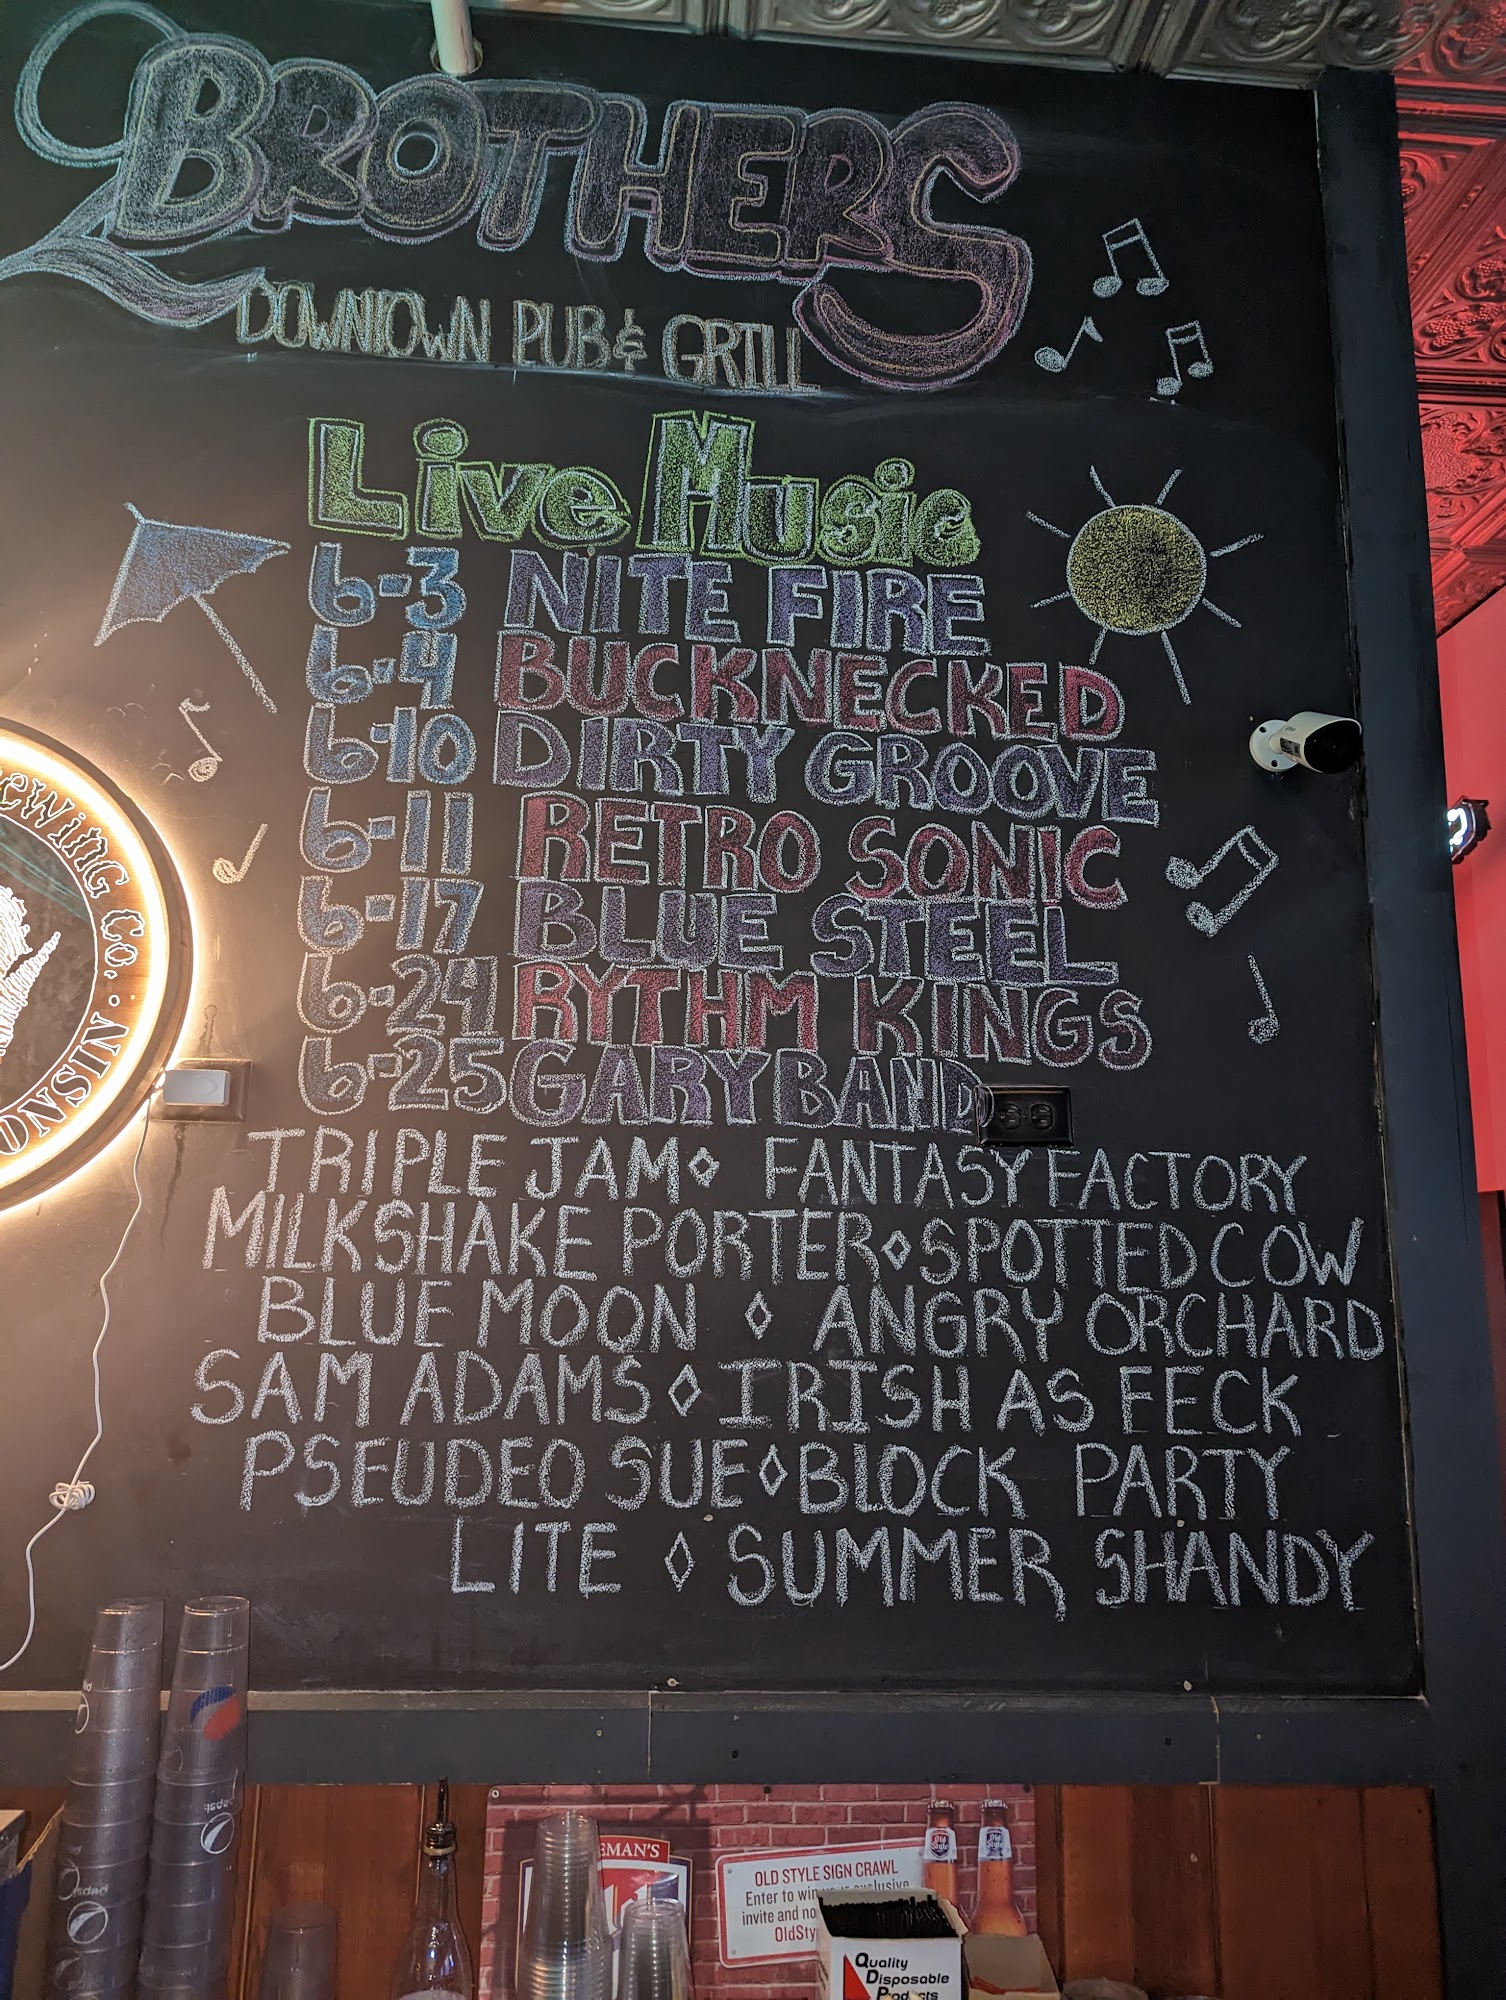 BROTHERS
DOWNTOWN PUB & GRILL
Live Music
6-3 NITE FIRE
6-4 BUCKNECKED
6-10 DIRTY GROOVE
6-11 RETRO SONIC
6-17 BLUE STEEL
6-24 RYTHM KINGS
6-25 GARY BAND
TRIPLE JAM ◇ FANTASY FACTORY
MILKSHAKE PORTER ◇ SPOTTED COW
BLUE MOON ◇ ANGRY ORCHARD
SAM ADAMS ◇ IRISH AS FECK
PSEUDEO SUE ◇ BLOCK PARTY
LITE ◇ SUMMER SHANDY
EWING CO. • ONSIN
pepsi
EMAN'S
OLD STYLE SIGN CRAWL
Enter to win exclusive
invite and no
OldSty
Old Style
Old Style
Quality
Disposable
Products